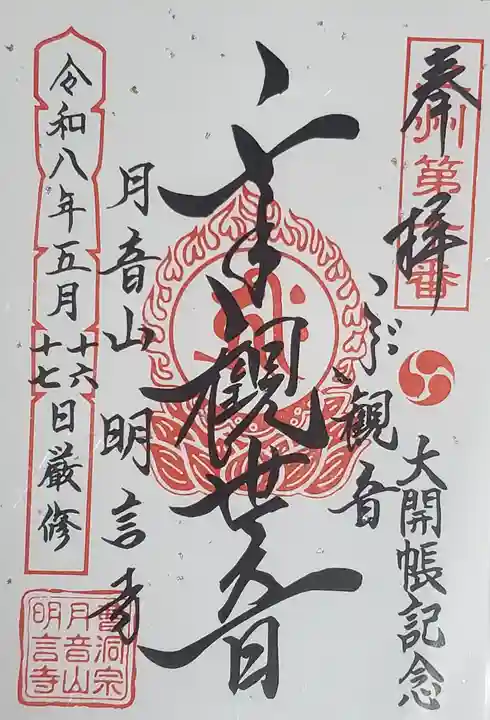 奉拝
州第
番
大開帳記念
觀音
千手觀世音
月音山 明言寺
令和八年五月十六十七日厳修
曹洞宗
月音山
明言寺